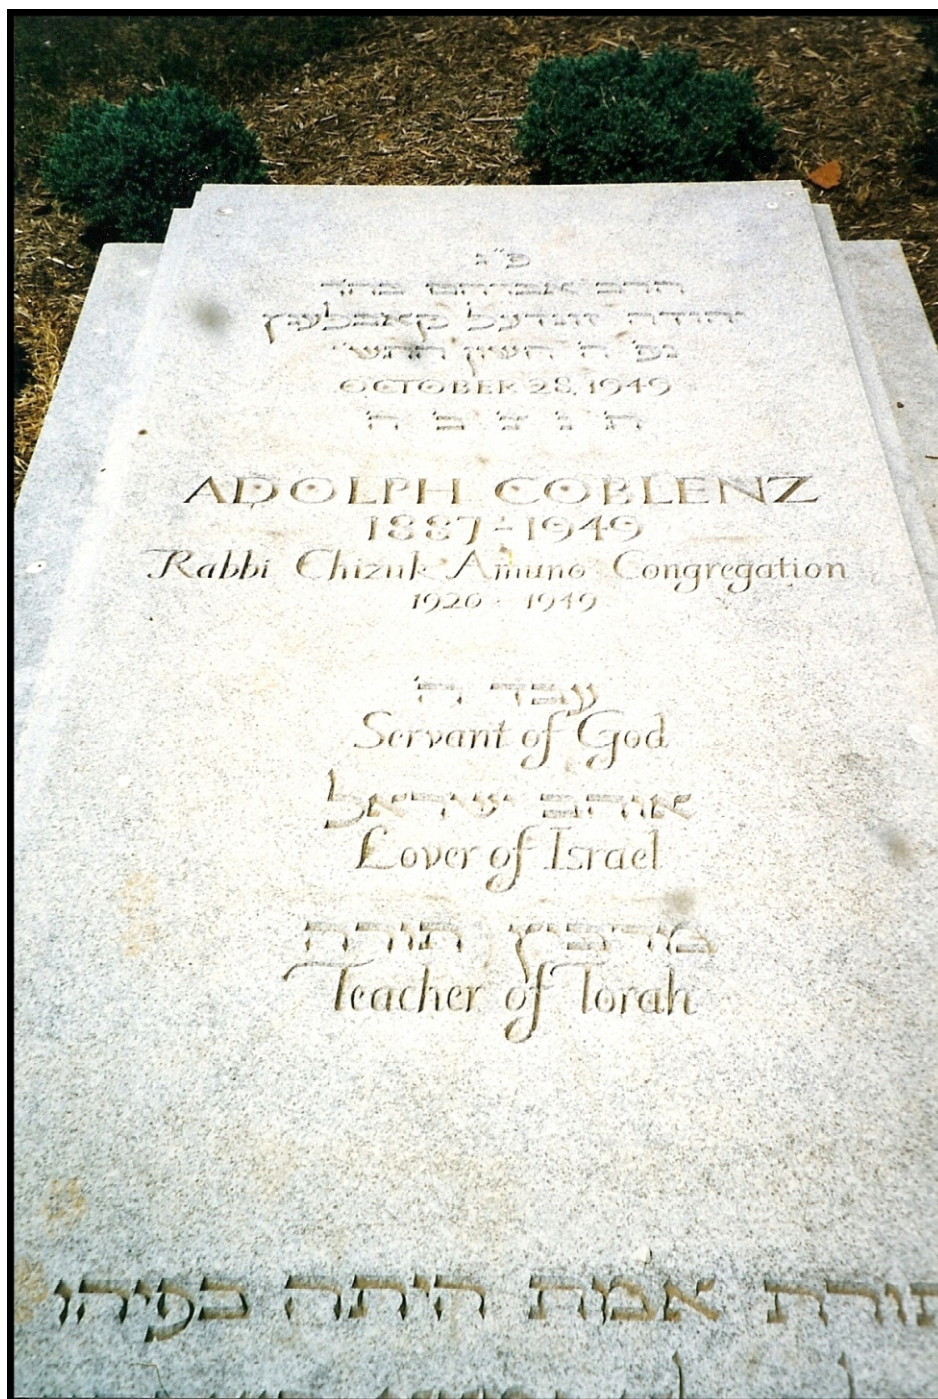 פ"נ
הרב אברהם בהר'
יהודה זונדעל קאבלענץ
נפ' ה' חשון התש"י
OCTOBER 28, 1949
ת' נ' צ' ב' ה'
ADOLPH COBLENZ
1887 - 1949
Rabbi Chizuk Amuno Congregation
1920 - 1949
עבד ה'
Servant of God
אוהב ישראל
Lover of Israel
מרביץ תורה
Teacher of Torah
תורת אמת היתה בפיהו